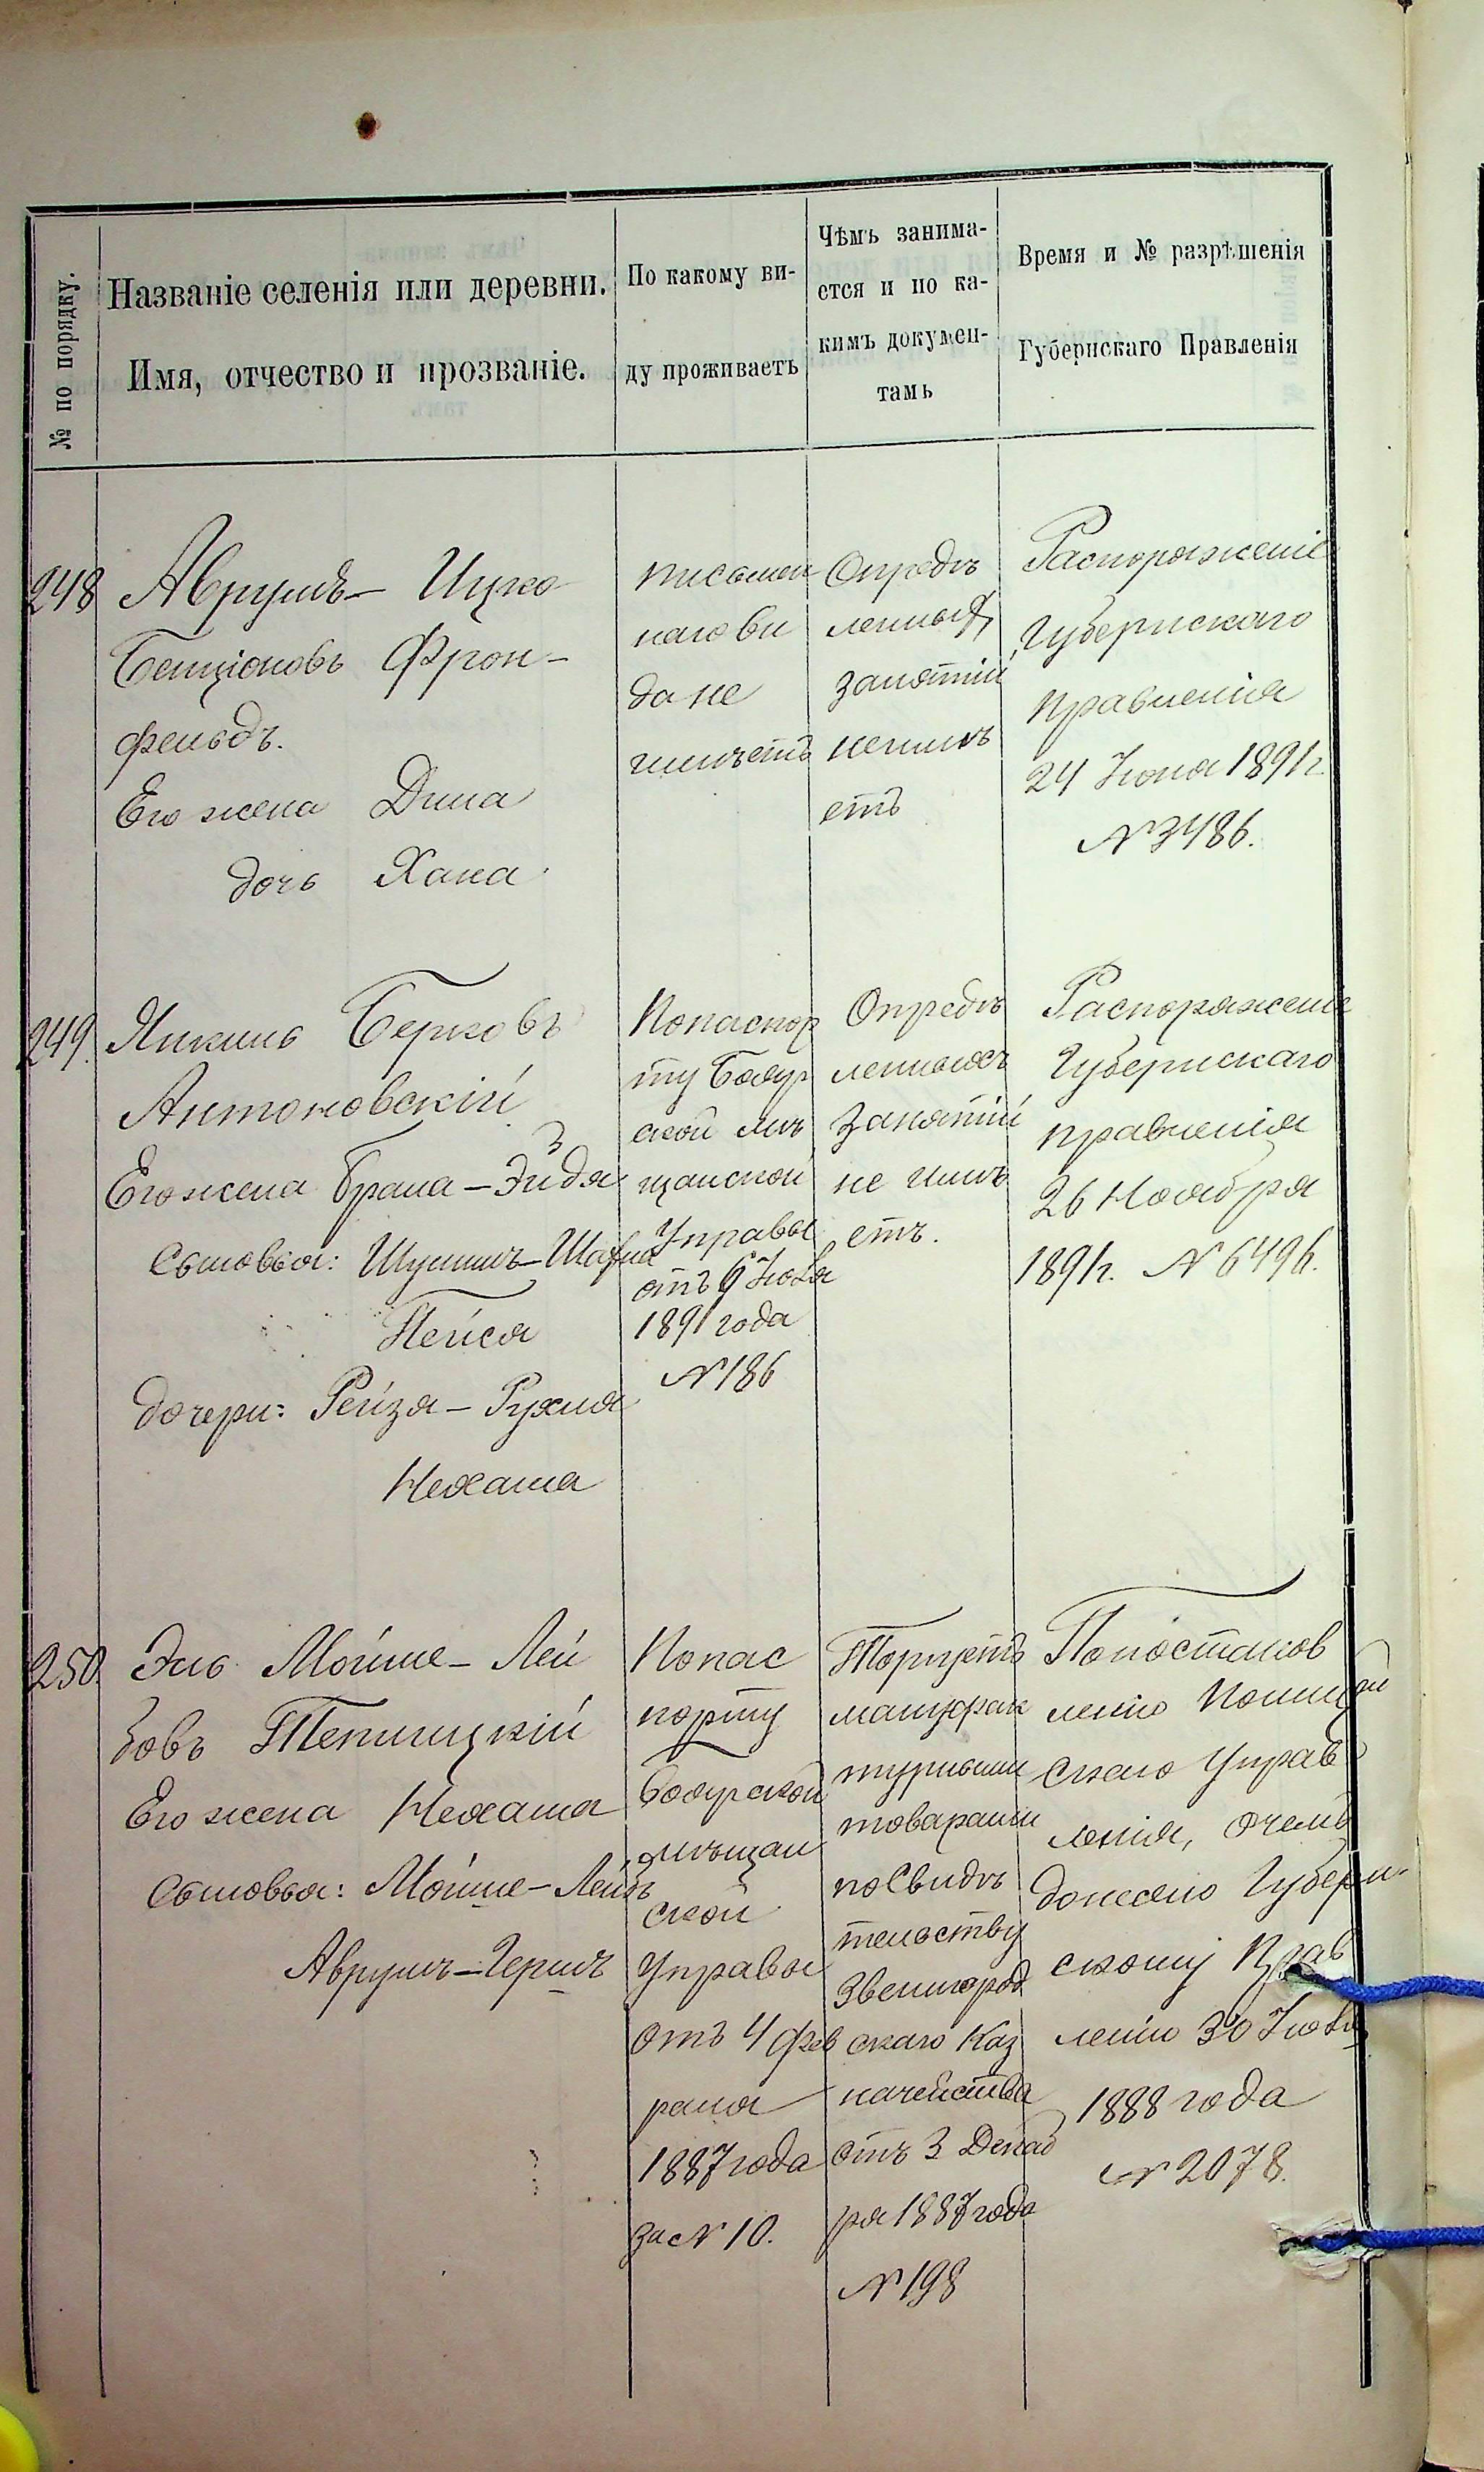 № по порядку.
Названіе селенія или деревни.
Имя, отчество и прозваніе.
По какому ви-
ду проживаетъ
Чѣмъ занима-
ется и по ка-
кимъ докумен-
тамъ
Время и № разрѣшенія
Губернскаго Правленія
248
Аврумъ- Ицко
Бенціоновъ Фрон-
фельдъ.
Его жена Дина
дочь Хана
писмен
наго ви
да не
имѣетъ
Опредѣ
ленныхъ
занятій
неимѣ
етъ
Распоряженіе
Губернскаго
правленія
24 Іюня 1891 г.
№ 3486.
249.
Янкель Берковъ
Антоновскій
Его жена Брана-Эйдя
Сыновья: Шулимъ-
Пейся
дочери: Рейзя- Рухля
Нехама
Попаспор
ту
ской мѣ
щанской
Управы
отъ 6 Іюля
1891 года
№ 186
Опредѣ
ленныхъ
занятій
не имѣ
етъ.
Распоряженіе
Губернскаго
правленія
26 Ноября
1891 г. № 6496.
250.
Эль Мойше- Лей
бовъ Теплицкій
Его жена Нехама
Сыновья: Мойше- Лейбъ
Аврумъ-Гершъ
Попас
порту
мѣщан
ской
Управы
отъ 4 фев
раля
1887 года
за № 10.
Торгуетъ
мануфак
турными
товарами
посвидѣ
тельству
Звенигород
скаго Каз
начейства
отъ 3 Декаб
ря 1887 года
№ 198
Попостанов
ленію Полицей
скаго Управ
ленія, очемъ
донесено Губерн-
скому Прав
ленію 30 Іюля
1888 года
№ 2078.